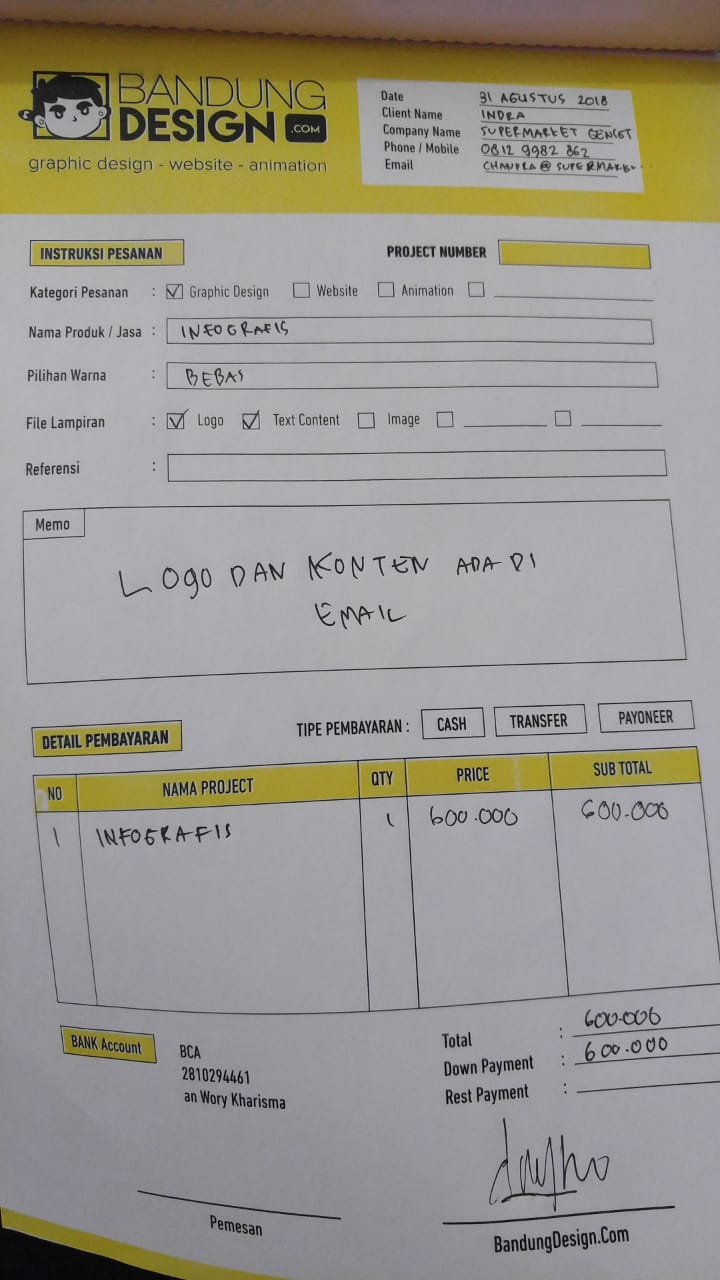 BANDUNG
DESIGN .COM
graphic design - website - animation
Date 31 AGUSTUS 2018
Client Name INDRA
Company Name SUPERMARKET GENSET
Phone / Mobile 0812 9982 862
Email CHANDRA@SUPERMARK
INSTRUKSI PESANAN PROJECT NUMBER
Kategori Pesanan : Graphic Design Website Animation
Nama Produk / Jasa : INFOGRAFIS
Pilihan Warna : BEBAS
File Lampiran : Logo Text Content Image
Referensi :
Memo
LOGO DAN KONTEN ADA DI
EMAIL
DETAIL PEMBAYARAN TIPE PEMBAYARAN : CASH TRANSFER PAYONEER
NO NAMA PROJECT QTY PRICE SUB TOTAL
1 INFOGRAFIS 1 600.000 600.000
BANK Account
BCA
2810294461
an Wory Kharisma
Total : 600.000
Down Payment : 600.000
Rest Payment :
Pemesan
BandungDesign.Com